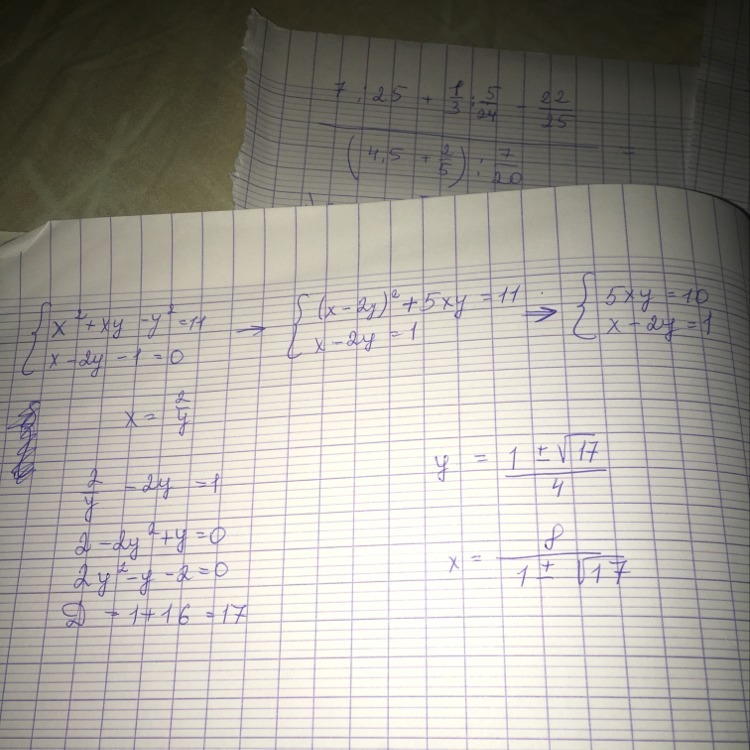 7 : 25 + 1/3 : 5/24 - 22/25
(4,5 + 2/5) : 7/20 =
{ x² + xy - y² = 11 → { (x - 2y)² + 5xy = 11 → { 5xy = 10
x - 2y - 1 = 0 x - 2y = 1 x - 2y = 1
x = 2/y
2/y - 2y = 1
2 - 2y² + y = 0
2y² - y - 2 = 0
D = 1 + 16 = 17
y = (1 ± √17)/4
x = 8/(1 ± √17)